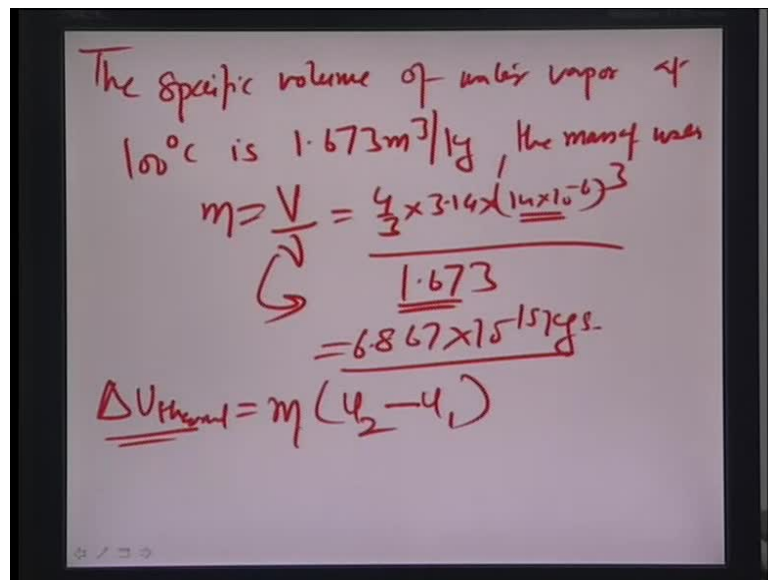 The specific volume of water vapor at
100°C is 1.673m³/kg, the mass of water
m = V/ν = 4/3 × 3.14 × (14×10⁻⁶)³
1.673
= 6.867×10⁻¹⁵ kgs.
ΔU thermal = m (u₂ – u₁)